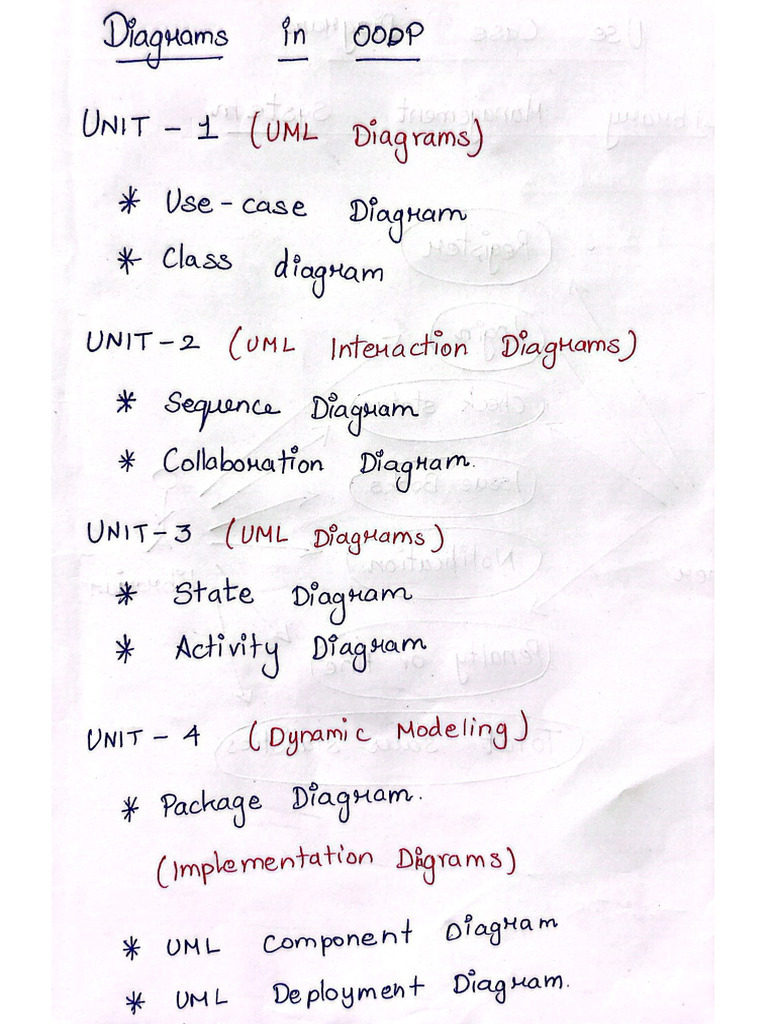 Diagrams in OODP
UNIT - 1 (UML Diagrams)
* Use-case Diagram
* Class diagram
UNIT-2 (UML Interaction Diagrams)
* Sequence Diagram
* Collaboration Diagram.
UNIT-3 (UML Diagrams)
* State Diagram
* Activity Diagram
UNIT - 4 (Dynamic Modeling)
* Package Diagram.
(Implementation Digrams)
* UML Component Diagram
* UML Deployment Diagram.